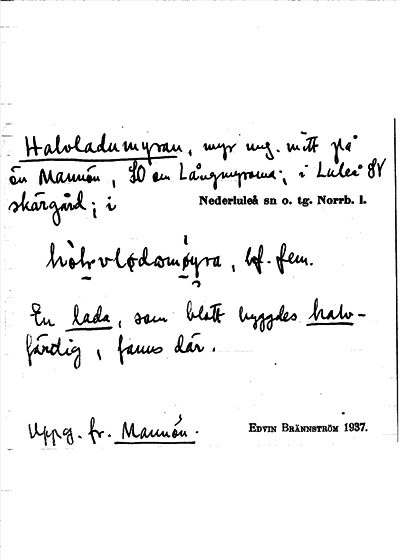 Halvladumyran, myr ung. mitt på
ön Mannön, SO om Långmyrarna; i Luleå SV
skärgård; i Nederluleå sn o. tg. Norrb. l.
bf. fem.
En lada, som blott byggdes halv-
färdig, fanns där.
Uppg. fr. Mannön.
EDVIN BRÄNNSTRÖM 1937.